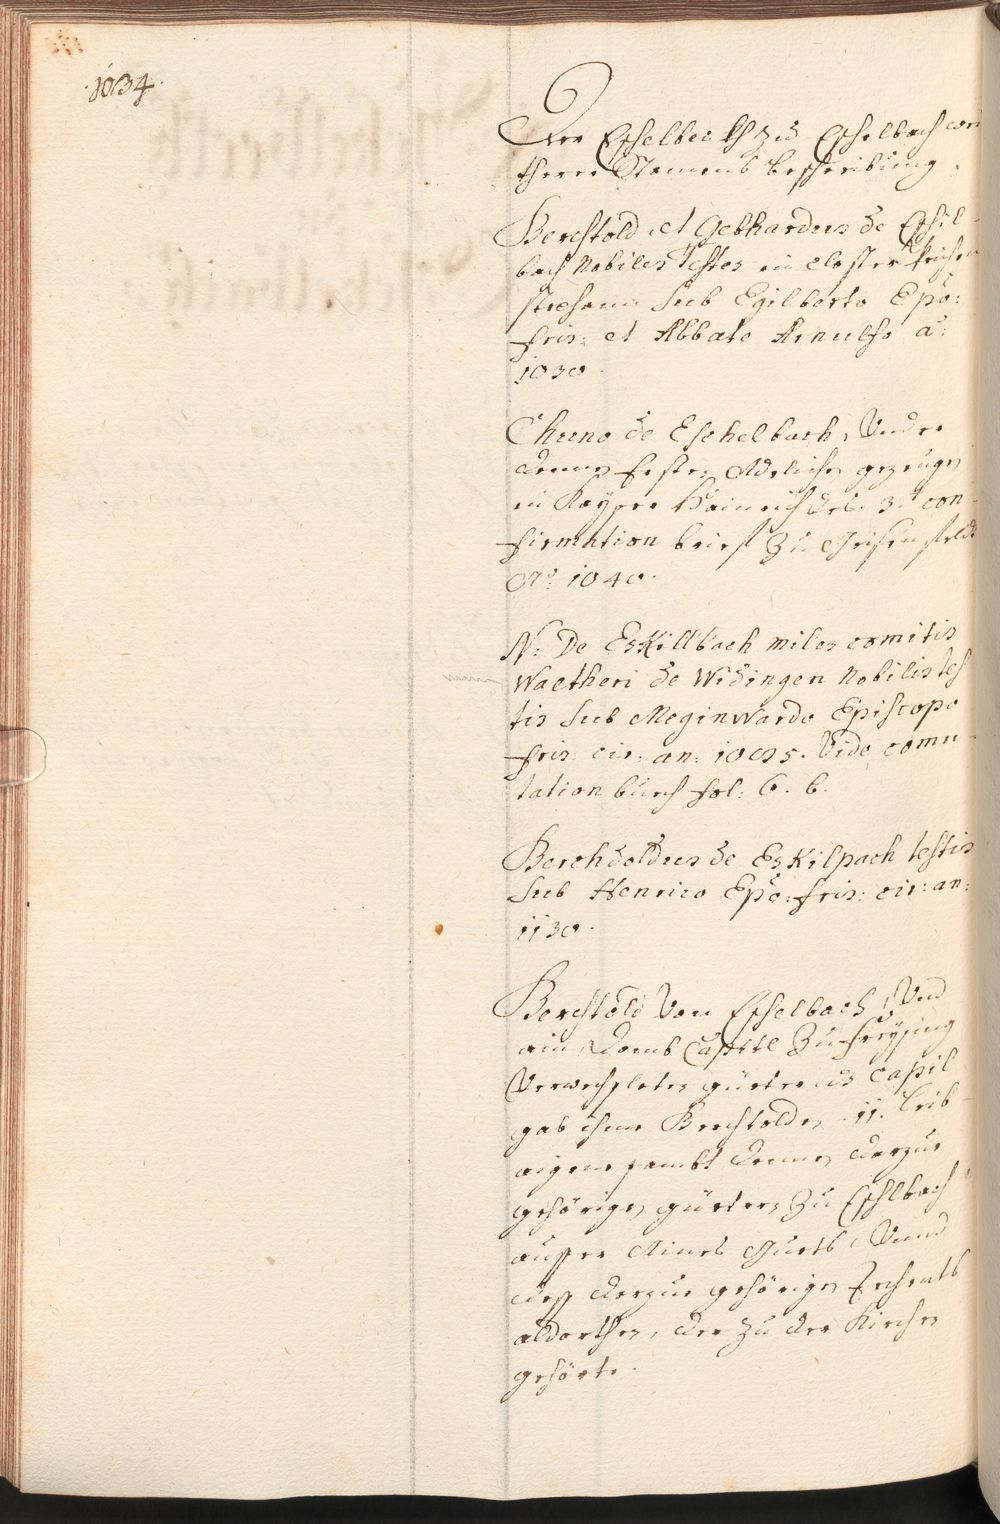 .1034.
Der Eschelbeckh zu Eschelbach wei
therer Stamens beschreibung.
Berchtold et Gebhardus de Eschil
bach Nobiles Testes in closter
stiefani sub Egilberto Epõ:
fris: et Abbate Arnulfo a:
1030.
Chuno de Eschelbach, Under
denen Ersten Adelichen gezeugen
in Kaysers Hainrich des 3.t con
firmation brief zu Geisenfeldt
Aõ. 1040.
N: De Eskillbach miles comitis
Waltheri de Widingen Nobilis tes
tis sub Meginwardo Episcopo
fris: cir: an: 1085. Vide comu
tation buech fol: 6. b.
Berchdoldus de Eskilpach testis
sub Henrico Epõ: fris: cir: an:
1130.
Berchtold Von Eschelbach, Und
ain Domb Capitl Zu Freysing
Verwechsleten güeter das Capitl
gab ihme Berchtolden, 11. Leib
aigene sambt denen darzue
gehörigen güetern Zu Eschlbach
ausser Aines Guets, Unnd
dess darzue gehörigen Zechents
aldorthen, der zu der Kirchen
gehörte.